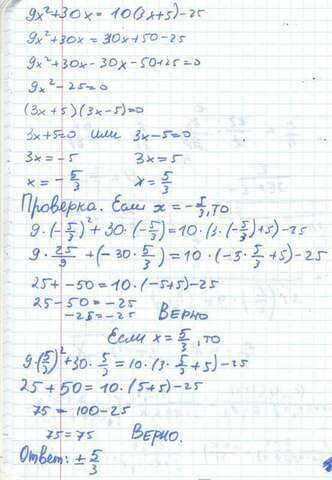 9x²+30x = 10(3x+5)-25
9x²+30x = 30x+50-25
9x²+30x-30x-50+25=0
9x²-25=0
(3x+5)(3x-5)=0
3x+5=0 или 3x-5=0
3x=-5 3x=5
x=-5/3 x=5/3
Проверка. Если x=-5/3, то
9·(-5/3)²+30·(-5/3)=10·(3·(-5/3)+5)-25
9·25/9+(-30·5/3)=10·(-3·5/3+5)-25
25+-50=10·(-5+5)-25
25-50=-25
-25=-25 Верно
Если x=5/3, то
9·(5/3)²+30·5/3=10·(3·5/3+5)-25
25+50=10·(5+5)-25
75=100-25
75=75 Верно.
Ответ: ±5/3